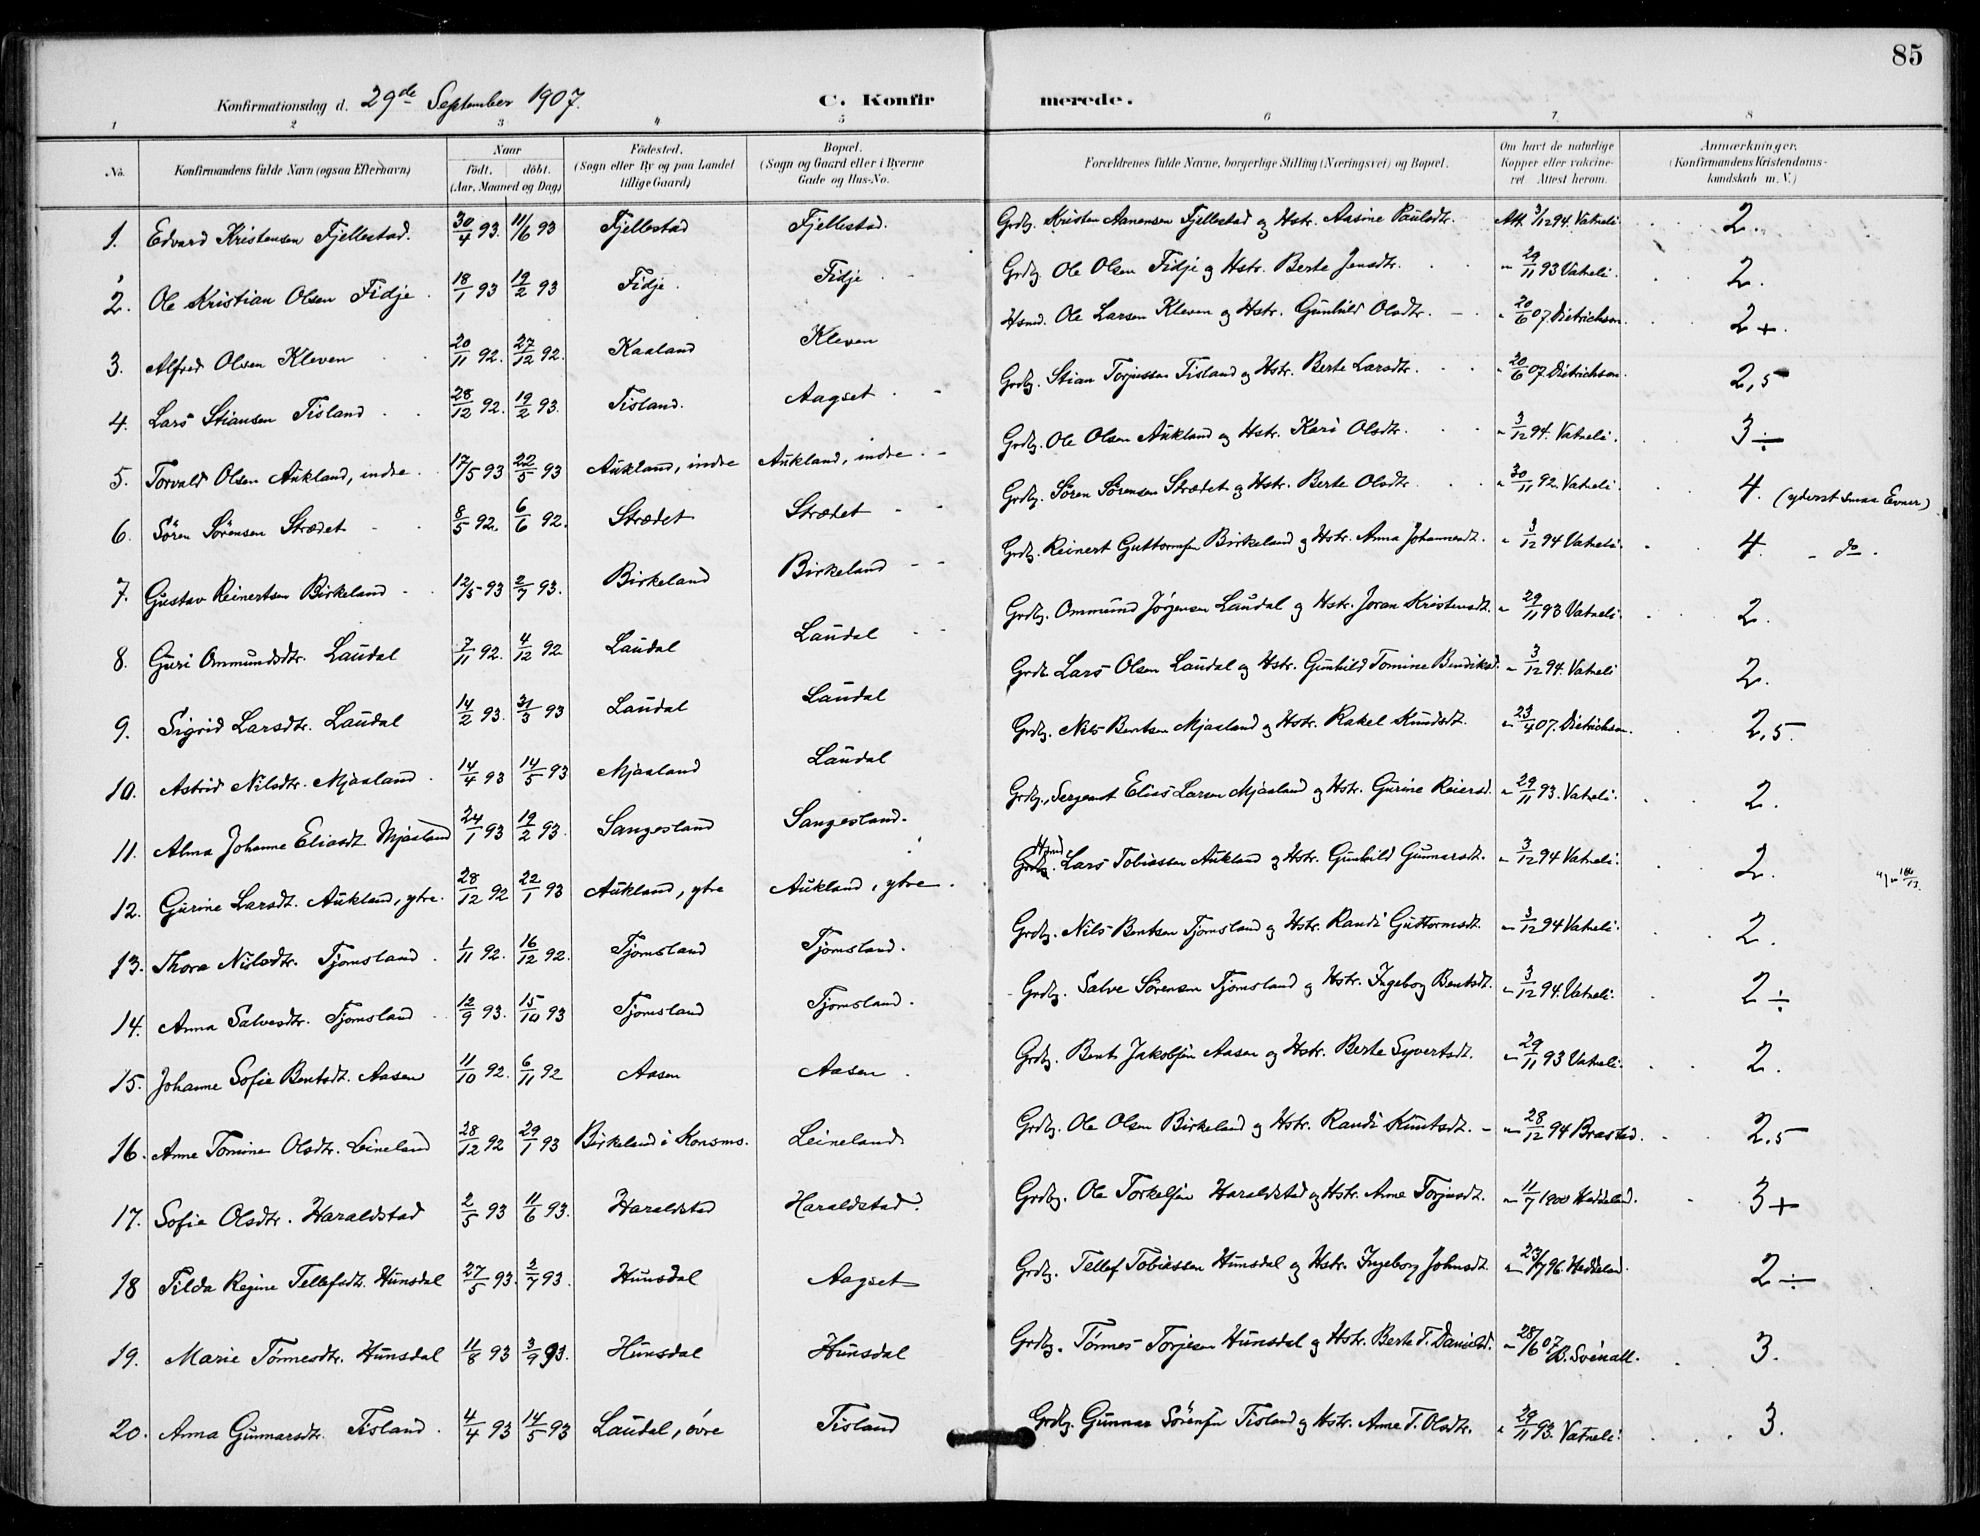 85
Konfirmationsdag d. 29de September 1907. C. Konfirmerede.
1 2 3 4 5 6 7. 8
No. Konfirmandens fulde Navn (ogsaa Efternavn) Naar født. døbt. (Aar, Maaned og Dag) Fødested. (Sogn eller By og paa Landet tillige Gaard) Bopæl. (Sogn og Gaard eller i Byerne Gade og Hus-No. Forældrenes fulde Navne, borgerlige Stilling (Næringsvei) og Bopæl. Om havt de naturlige Kopper eller vakcineret Attest herom. Anmærkninger. (Konfirmandens Kristendomskundskab m. V.)
1. Edvard Kristensen Fjellestad. 30/4 93. 11/6 93 Fjellestad Fjellestad. Grdbg. Kristen Aanensen Fjellestad og Hstr. Aasine Paulsdtr. Att. 3/12 94. Vatneli 2.
2. Ole Kristian Olsen Fidje 18/1 93 19/2 93 Fidje. Fidje Grdbg. Ole Olsen Fidje og Hstr. Berte Jensdtr. " 29/11 93 Vatneli. 2.
3. Alfred Olsen Kleven 20/11 92. 27/12 92. Kaaland Kleven Hsmd. Ole Larsen Kleven og Hstr. Gunhild Olsdtr. " 20/6 07. Dietrichson. 2+.
4. Lars Stiansen Tisland 28/12 92. 19/2 93. Tisland. Aagset Grdbg. Stian Torjussen Tisland og Hstr. Berte Larsdtr. " 20/6 07. Dietrichson. 2,5
5. Torvald Olsen Aukland, indre 17/5 93 22/5 93 Aukland, indre Aukland, indre Grdbg. Ole Olsen Aukland og Hstr. Kari Olsdtr. " 3/12 94. Vatneli. 3÷
6. Søren Sørensen Strædet 8/5 92. 6/6 92. Strædet Strædet Grdbg. Søren Sørensen Strædet og Hstr. Berte Olsdtr. " 30/11 92. Vatneli 4. (yderst smaa Evner)
7. Gustav Reinertsen Birkeland 12/5 93 2/7 93. Birkeland Birkeland Grdbg. Reinert Guttormsen Birkeland og Hstr. Anna Johannesdt. " 3/12 94 Vatneli. 4. - do -
8. Guri Ommundsdtr. Laudal 7/11 92. 4/12 92 Laudal Laudal Grdbg. Ommund Jørgensen Laudal og Hstr. Joran Kristensdt. " 29/11 93 Vatneli. 2.
9. Sigrid Larsdtr. Laudal 14/2 93. 31/3 93 Laudal Laudal Grdb. Lars Olsen Laudal og Hstr. Gunhild Tomine Bendiksd. " 3/12 94. Vatneli 2.
10. Astrid Nilsdtr. Mjaaland 14/4 93 14/5 93 Mjaaland Laudal Grdbg. Nils Bentsen Mjaaland og Hstr. Rakel Knudsdt. " 23/4 07. Dietrichson. 2,5.
11. Alma Johanne Eliasdt. Mjaaland 24/1 93 19/2 93. Sangesland Sangesland. Grdbg., Sergeant Elias Larsen Mjaaland og Hstr. Gurine Reiersd. " 29/11 93. Vatneli. 2.
12. Gurine Larsdt. Aukland, ytre. 28/12 92 22/1 93 Aukland, ytre Aukland, ytre. Hsmd. Lars Tobiassen Aukland og Hstr. Gunhild Gunnarsdt. " 3/12 94 Vatneli. 2.
13. Thora Nilsdtr. Tjomsland. 1/11 92. 16/12 92. Tjomsland Tjomsland. Grdbg. Nils Bentsen Tjomsland og Hstr. Randi Guttormsdt. " 3/12 94 Vatneli. 2.
14. Anna Salvesdtr. Tjomsland 12/9 93. 15/10 93 Tjomsland Tjomsland. Grdbg. Salve Sørensen Tjomsland og Hstr. Ingeborg Bentsdt. " 3/12 94. Vatneli. 2÷
15. Johanne Sofie Bentsdt. Aasen 11/10 92. 6/11 92 Aasen Aasen. Grdbg. Bent Jakobsen Aasen og Hstr. Berte Syvertsdt. " 29/11 93 Vatneli. 2.
16. Anne Tomine Olsdtr. Leineland 28/12 92 29/1 93 Birkeland i Konsms. Leineland. Grdbg. Ole Olsen Birkeland og Hstr. Randi Knutsdt. " 28/12 94 Brastad. 2,5
17. Sofie Olsdtr. Haraldstad 2/5 93 11/6 93. Haraldstad Haraldstad. Grdbg. Ole Torkelsen Haraldstad og Hstr. Anne Torjusdt. " 11/7 1900 Heddeland. 3+
18 Tilda Regine Tellefsdt. Hunsdal 27/5 93. 2/7 93. Hunsdal Aagset Grdbg. Tellef Tobiassen Hunsdal og Hstr. Ingeborg Johnsdt. " 23/7 96. Heddeland. 2÷
19. Marie Tørresdtr. Hunsdal 11/8 93 3/9 93. Hunsdal Hunsdal Grdbg. Tørres Torjesen Hunsdal og Hstr. Berte T. Danielsd. " 28/6 07 B. Svinall. 3.
20. Anna Gunnarsdtr. Tisland. 4/4 93 14/5 93 Laudal, övre Tisland Grdbg. Gunnar Sørensen Tisland og Hstr. Anne T. Olsdtr. " 29/11 93. Vatneli. 3.